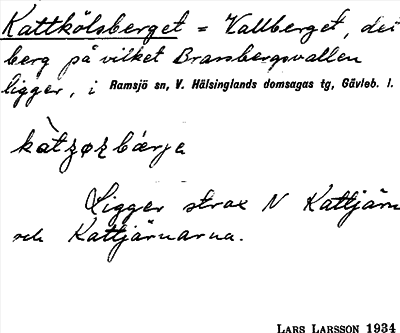 Kattkölsberget = Vallberget, det
berg på vilket Brassbergsvallen
ligger, i Ramsjö sn, V. Hälsinglands domsagas tg, Gävleb. l.
Ligger strax N Kattjärn
och Kattjärnarna.
LARS LARSSON 1934